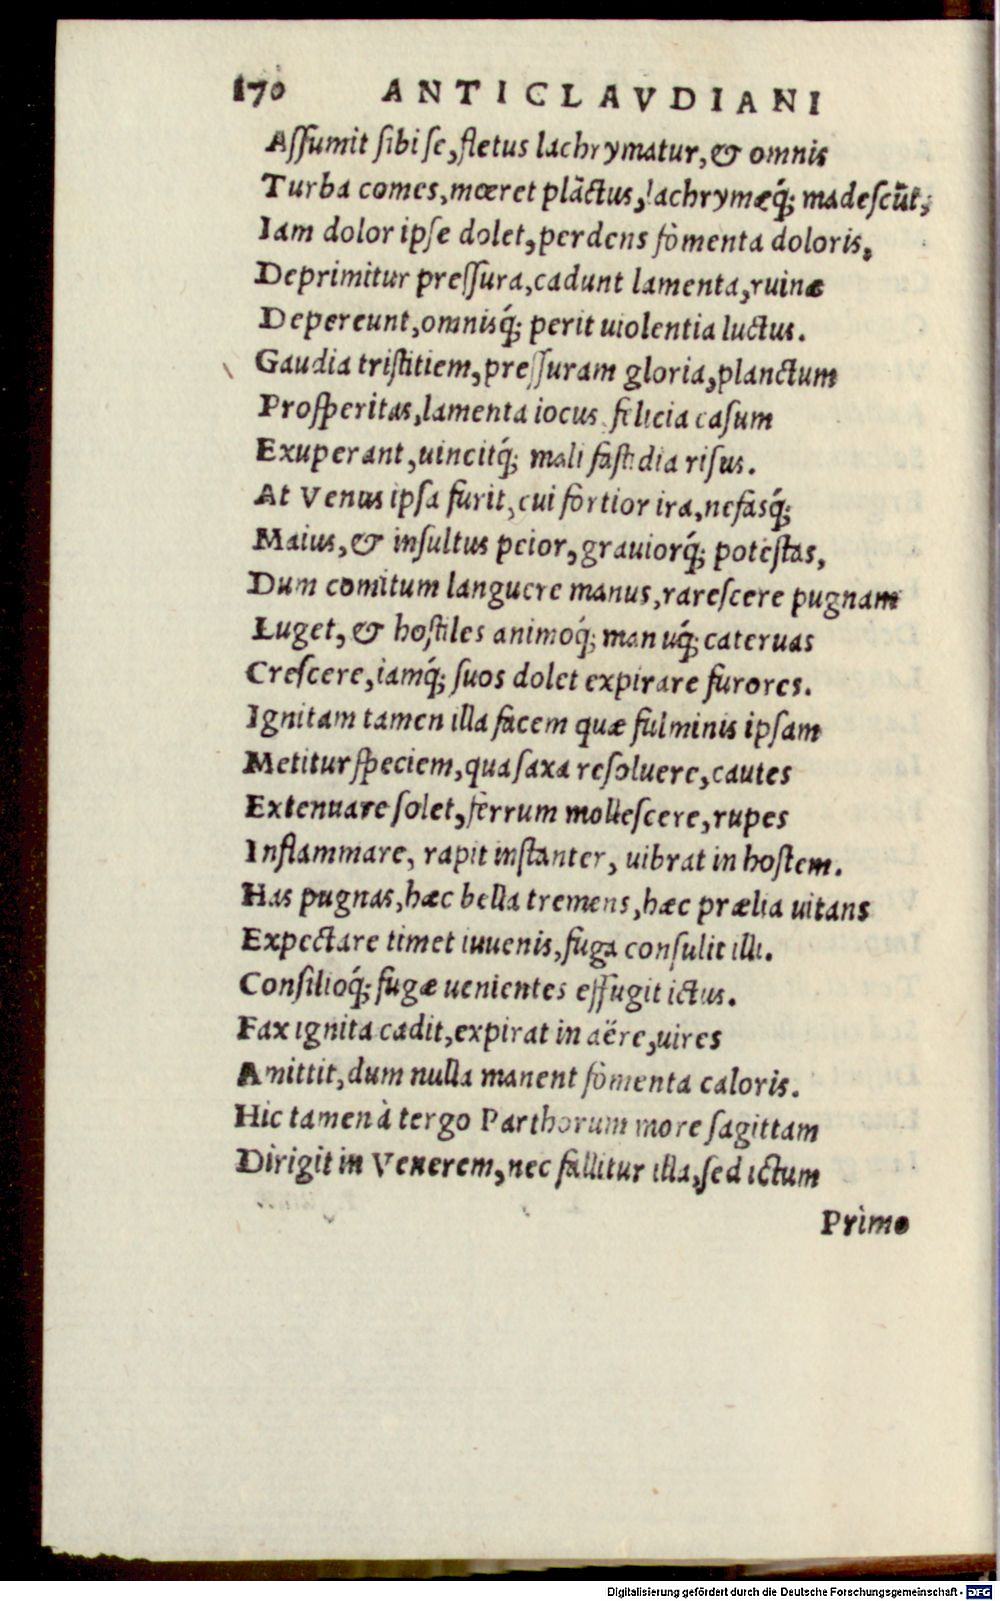 170 ANTICLAVDIANI
Aſſumit ſibi ſe, fletus lachrymatur, & omnis
Turba comes, mœret plãctus, lachrymæq́; madeſcũt,
Iam dolor ipſe dolet, perdens fomenta doloris,
Deprimitur preſſura, cadunt lamenta, ruinæ
Depereunt, omnisq́; perit uiolentia luctus.
Gaudia triſtitiem, preſſuram gloria, planctum
Proſperitas, lamenta iocus felicia caſum
Exuperant, uincitq́; mali faſtidia riſus.
At Venus ipſa furit, cui fortior ira, nefasq́;
Maius, & inſultus peior, grauiorq́; poteſtas,
Dum comitum languere manus, rareſcere pugnam
Luget, & hoſtiles animoq́; manuq́; cateruas
Creſcere, iamq́; ſuos dolet expirare furores.
Ignitam tamen illa facem quæ fulminis ipſam
Metitur ſpeciem, qua ſaxa reſoluere, cautes
Extenuare ſolet, ferrum molleſcere, rupes
Inflammare, rapit inſtanter, uibrat in hoſtem.
Has pugnas, hæc bella tremens, hæc prælia uitans
Expectare timet iuuenis, fuga conſulit illi.
Conſilioq́; fugæ uenientes effugit ictus.
Fax ignita cadit, expirat in aëre, uires
Amittit, dum nulla manent fomenta caloris.
Hic tamen à tergo Parthorum more ſagittam
Dirigit in Venerem, nec fallitur illa, ſed ictum
Primo
Digitalisierung gefördert durch die Deutsche Forschungsgemeinschaft - DFG